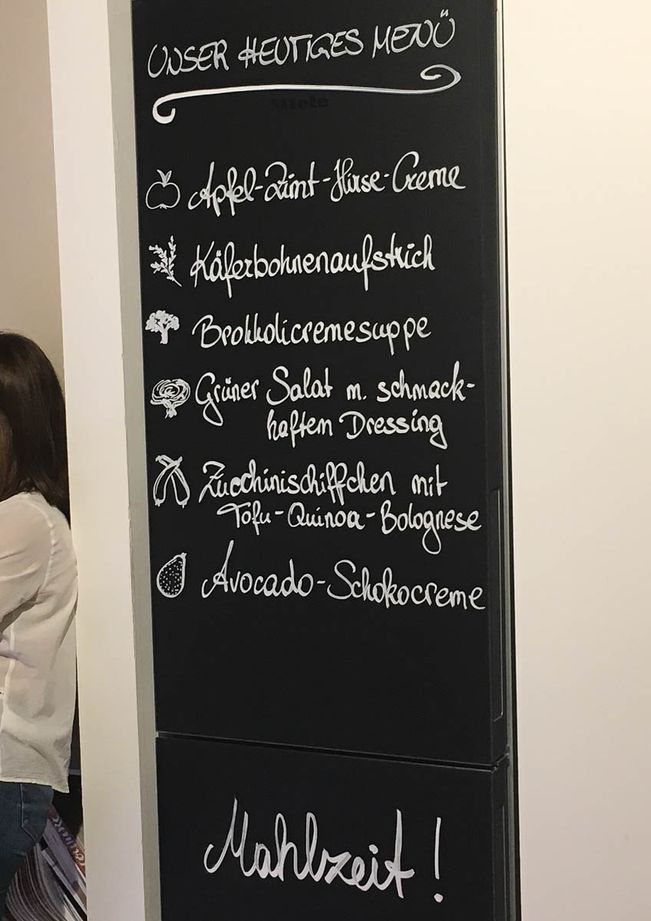 UNSER HEUTIGES MENÜ
Miele
Apfel-Zimt-Hirse-Creme
Käferbohnenaufstrich
Brokkolicremesuppe
Grüner Salat m. schmack-
haftem Dressing
Zucchinischiffchen mit
Tofu-Quinoa-Bolognese
Avocado-Schokocreme
Mahlzeit!